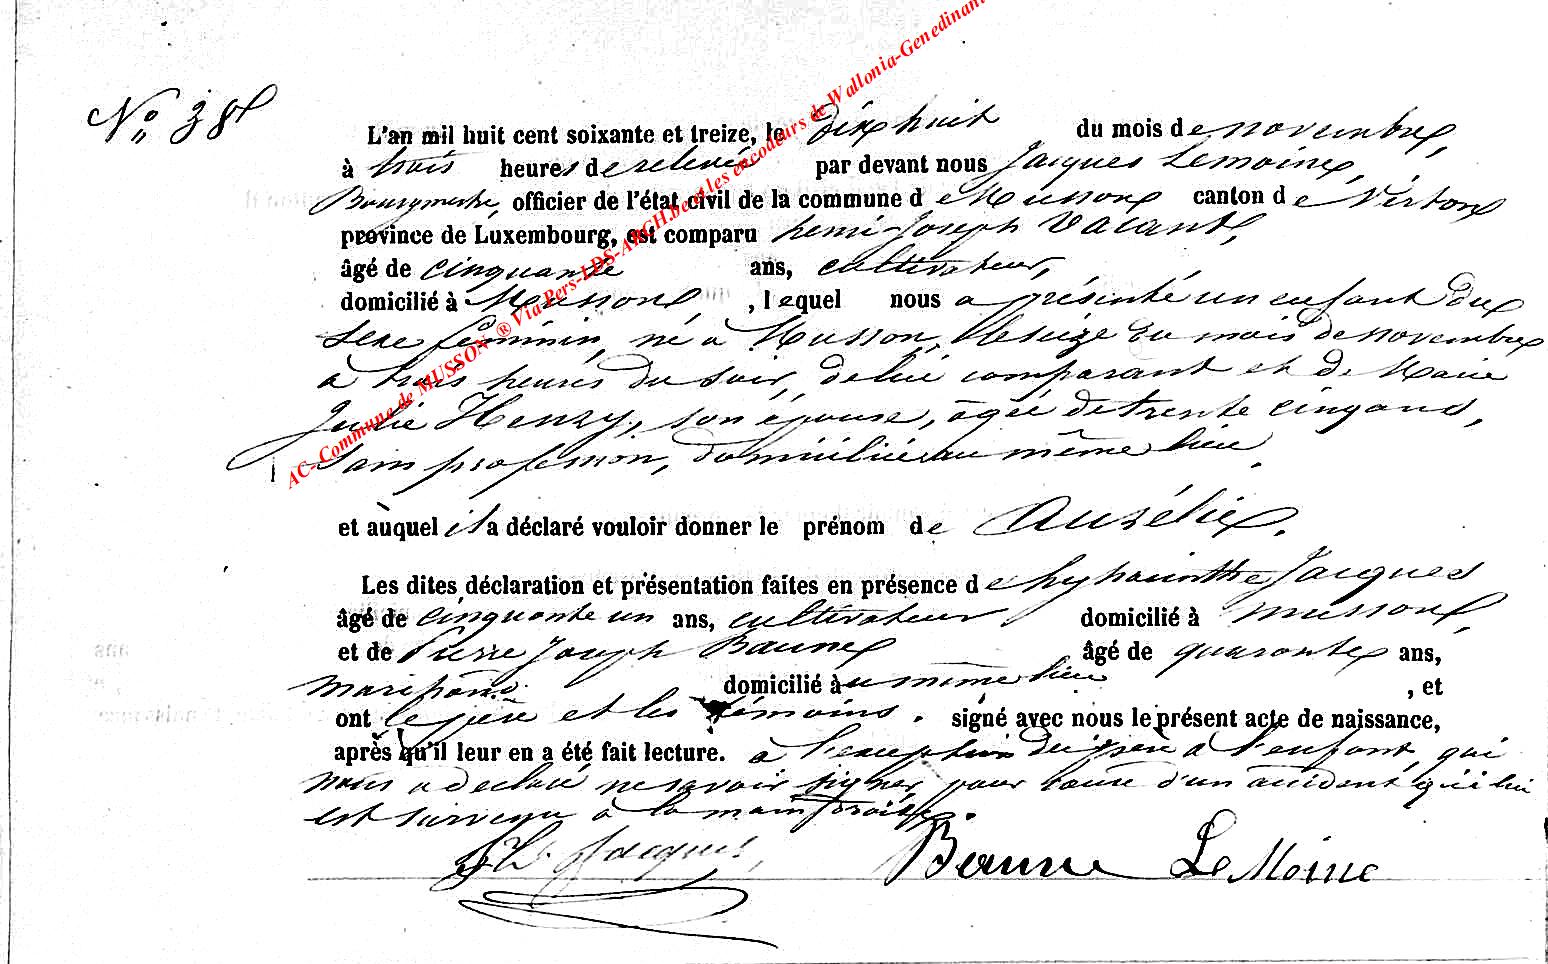 N° 38
L'an mil huit cent soixante et treize, le dix huit du mois de novembre,
à trois heures de relevée par devant nous Jacques Lemoine,
Bourgmestre, officier de l'état civil de la commune de Musson canton de Virton
province de Luxembourg, est comparu henri-Joseph Vacant,
âgé de cinquante ans, cultivateur,
domicilié à Musson, lequel nous a présenté un enfant du
sexe féminin, né à Musson, le seize du mois de novembre
à trois heures du soir, de lui comparant et de Marie
Julie Henry, son épouse, âgée de trente cinq ans,
sans profession, domiciliée au même lieu,
et auquel il a déclaré vouloir donner le prénom de Aurélie.
Les dites déclaration et présentation faites en présence de hyacinthe Jacques
âgé de cinquante un ans, cultivateur domicilié à musson,
et de Pierre Joseph Baune âgé de quarante ans,
domicilié au même lieu, et
ont le père et les témoins. signé avec nous le présent acte de naissance,
après qu'il leur en a été fait lecture. à l'exception du père à l'enfant, qui
nous a déclaré ne savoir signer, pour cause d'un accident qui lui
est survenu à la main droite.
H. Jacques Baune LeMoine
AC-Commune de MUSSON ® Via Pers-LDS-ARCH.be et les encodeurs de Wallonia-Genedinant